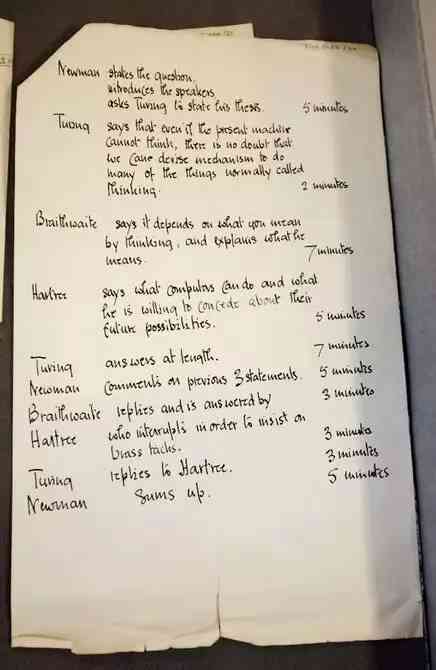 Newman states the question,
introduces the speakers
asks Turing to state his thesis. 5 minutes
Turing says that even if the present machine
cannot think, there is no doubt that
we can devise mechanism to do
many of the things normally called
thinking. 2 minutes
Braithwaite says it depends on what you mean
by thinking, and explains what he
means. 7 minutes
Hartree says what computers can do and what
he is willing to concede about their
future possibilities. 5 minutes
Turing answers at length. 7 minutes
Newman comments on previous 3 statements. 5 minutes
Braithwaite replies and is answered by 3 minutes
Hartree who interrupts in order to insist on
brass tacks. 3 minutes
Turing replies to Hartree. 3 minutes
Newman sums up. 5 minutes